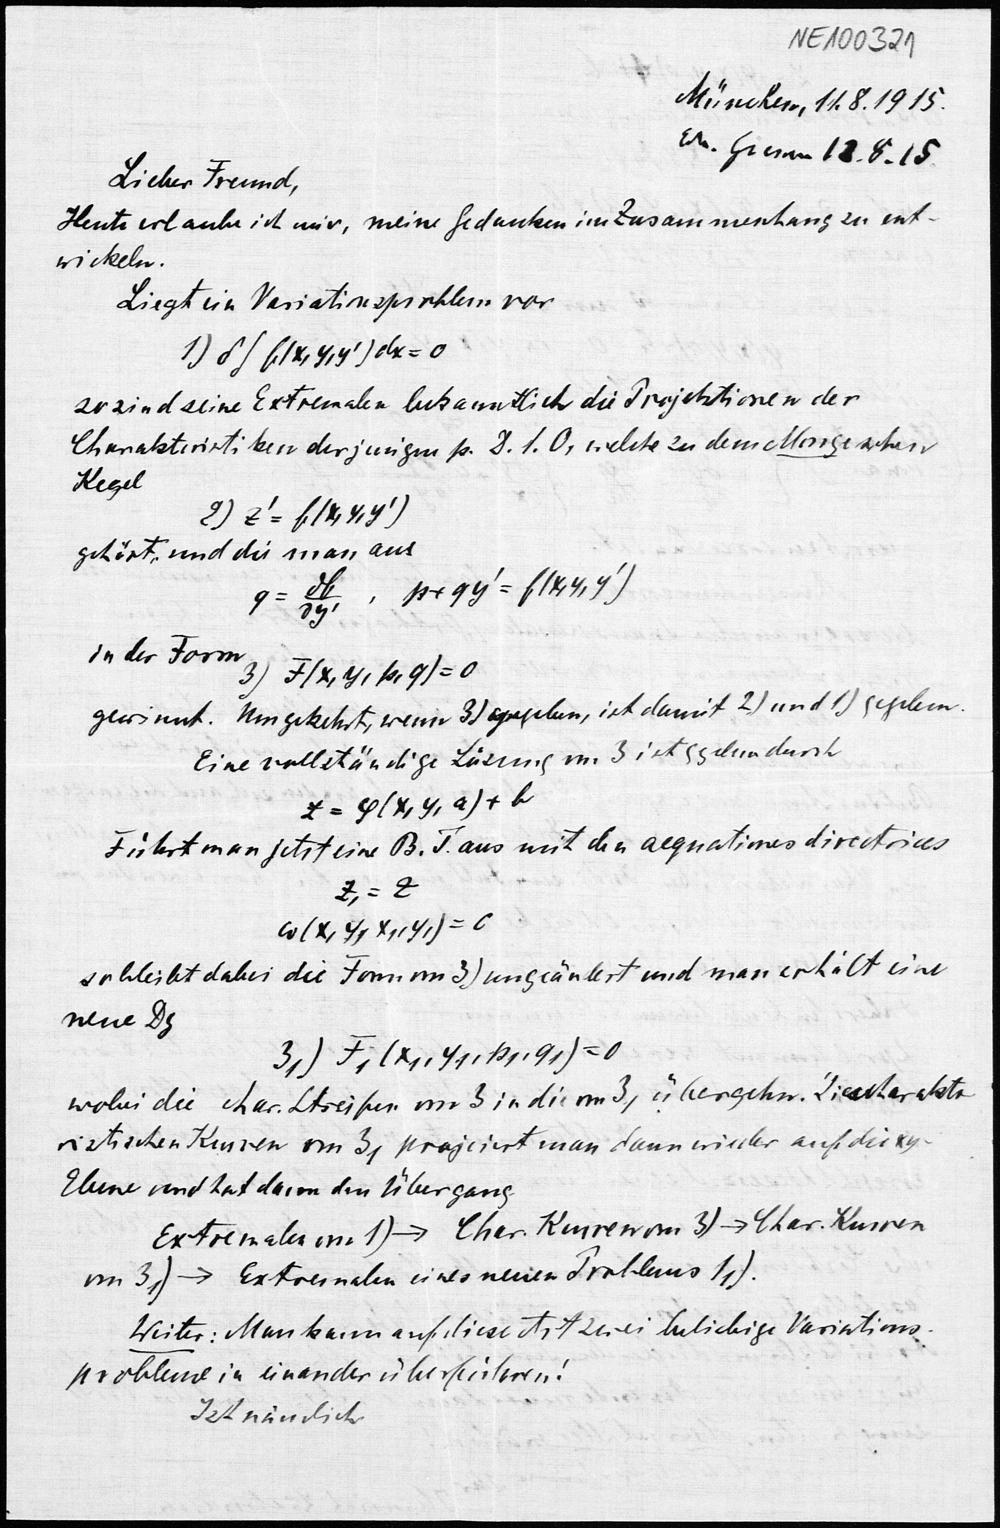 NE100321
München, 11.8.1915.
12.8.15
Lieber Freund,
Heute erlaube ich mir, meine Gedanken im Zusammenhang zu ent-
wickeln.
Liegt ein Variationsproblem vor
1) δ∫ f(x,y,y')dx = 0
so sind seine Extremalen bekanntlich die Projektionen der
Charakteristiken derjenigen p. D. 1. O., welche zu dem Mongeschen
Kegel
2) z' = f(x,y,y')
gehört, und die man aus
q = ∂f/∂y' , p + qy' = f(x,y,y')
in der Form
3) F(x,y,p,q) = 0
gewinnt. Umgekehrt, wenn 3) gegeben, ist damit 2) und 1) gegeben.
Eine vollständige Lösung von 3 ist gegeben durch
z = φ(x,y,a) + b
Führt man jetzt eine B.T. aus mit den aequationes directrices
z₁ = z
ω(x,y,x₁,y₁) = 0
so bleibt dabei die Form von 3) ungeändert und man erhält eine
neue Dg
3₁) F₁(x₁,y₁,p₁,q₁) = 0
wobei die char. Streifen von 3 in die von 3₁ übergehn. Die charakte
ristischen Kurven von 3₁ projiciert man dann wieder auf die xy-
Ebene und hat dann den Übergang
Extremalen von 1) → Char. Kurven von 3) → Char. Kurven
von 3₁) → Extremalen eines neuen Problems 1₁).
Weiter: Man kann auf diese Art zwei beliebige Variations-
probleme in einander überführen!
Ist nämlich